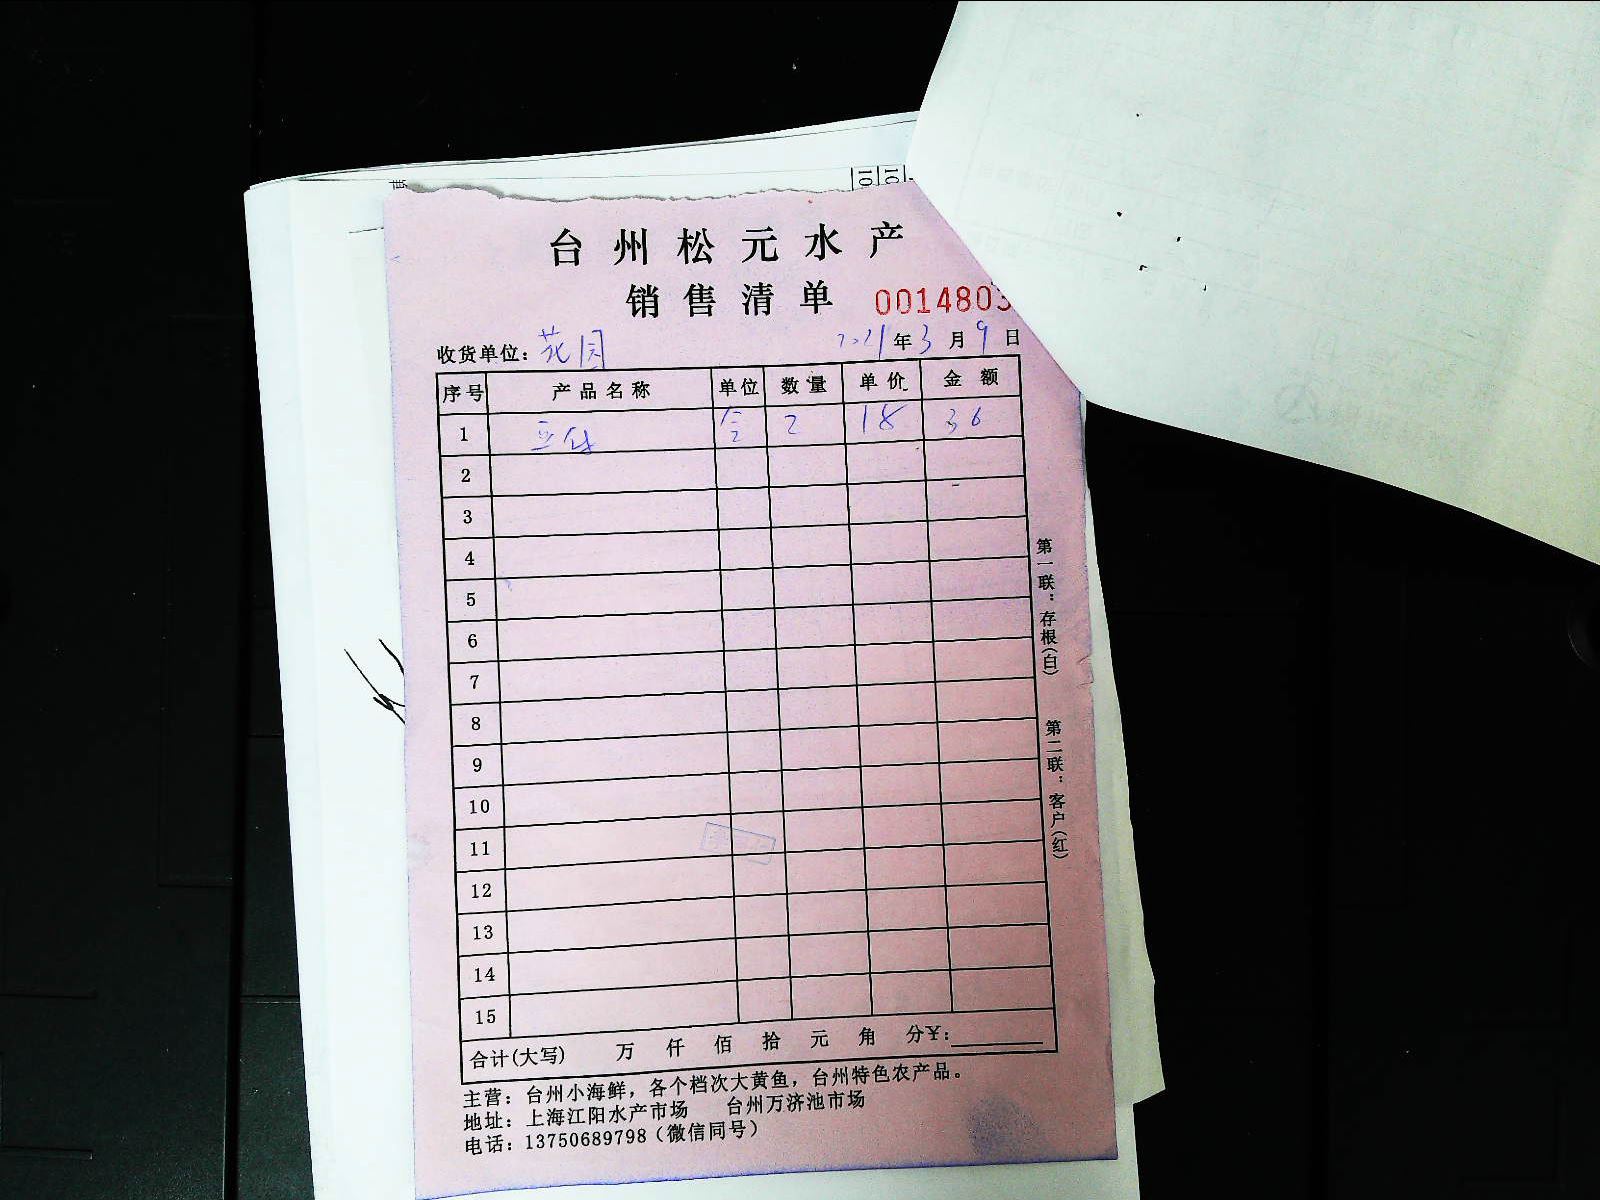 台州松元水产
销售清单 0014803
收货单位：花园 2021年3月9日
序号 产品名称 单位 数量 单价 金额
1 豆付 合 2 18 36
2
3
4
5
6
7
8
9
10
11
12
13
14
15
合计(大写) 万 仟 佰 拾 元 角 分¥:
主营：台州小海鲜，各个档次大黄鱼，台州特色农产品。
地址：上海江阳水产市场 台州万济池市场
电话：13750689798（微信同号）
第一联：存根(白) 第二联：客户(红)